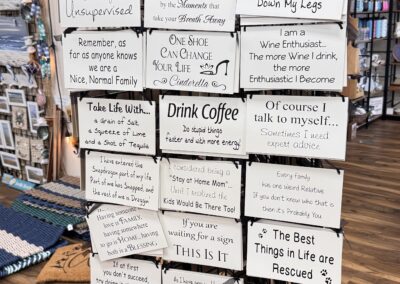 Unsupervised
by the Moments that
take your Breath Away
Down My Legs
Remember, as
far as anyone knows
we are a
Nice, Normal Family
One Shoe
Can Change
Your Life
Cinderella
I am a
Wine Enthusiast...
The more Wine I drink,
the more
Enthusiastic I Become
Take Life With...
a Grain of Salt
a Squeeze of Lime
and a Shot of Tequila
Drink Coffee
Do stupid things
faster and with more energy!
Of course I
talk to myself...
Sometimes I need
expert advice.
I have entered the
Snapdragon part of my life
Part of me has Snapped, and
the rest of me is Draggin'
I considered being a
"Stay at Home Mom"
Until I realized the
Kids Would Be There Too!
Every Family
has one weird Relative
If you don't know who that is
then it's Probably You
Having someone
to love is FAMILY,
having somewhere
to go is HOME, having
both is a BLESSING
If you are
waiting for a sign
This Is It
The Best
Things in Life are
Rescued
If at first
you don't succeed,